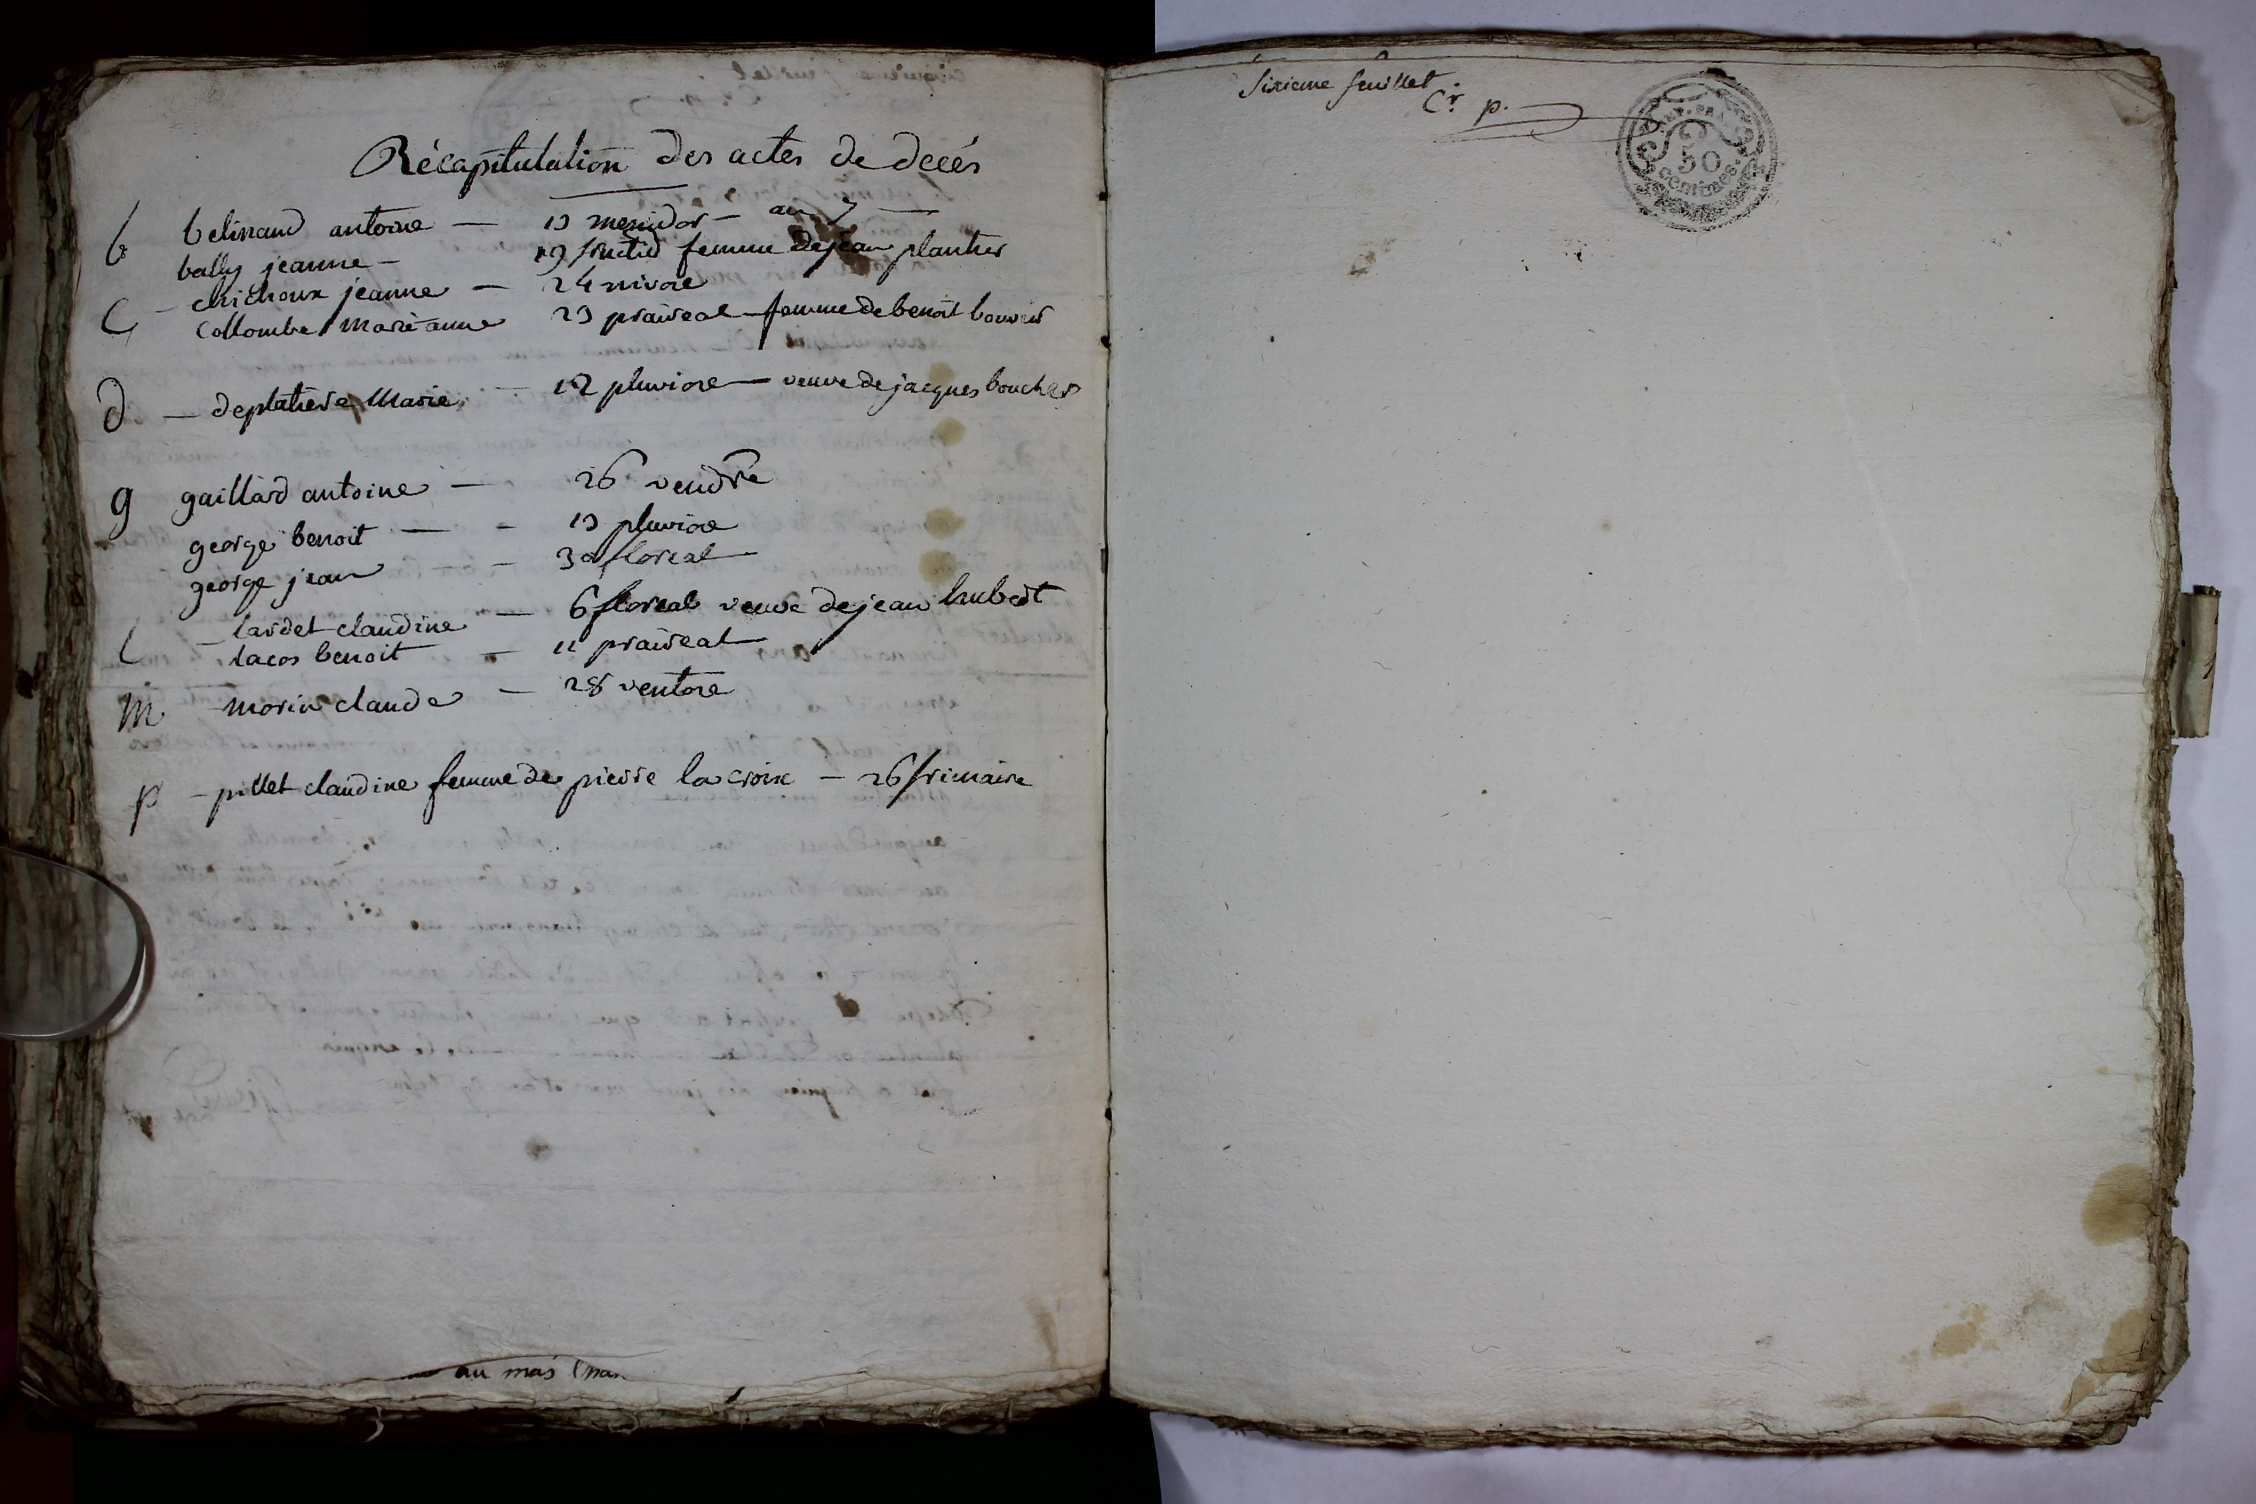 Récapitulation des actes de decés
b belinaud antoine — 13 mesidor — an 7 —
bally jeanne — 19 fructid femme de jean plantier
C — chichoux jeanne — 24 nivose
Collombe Marie anne 23 prairéal — femme de benoit bouvier
d — deplatiere Marie — 12 pluviose — veuve de jacques boucher
g gaillard antoine — 26 vendre
george benoit — - 13 pluviose
george jean - 30 floreal
l — lardet claudine — 6 floreal veuve de jean lambert
lacos benoit — 11 prairéal
m — morin claude — 28 ventose
p — pillet claudine femme de pierre la croix — 26 frimaire
au mas
Sixieme feuillet
Cr p.
50
CENTIMES.